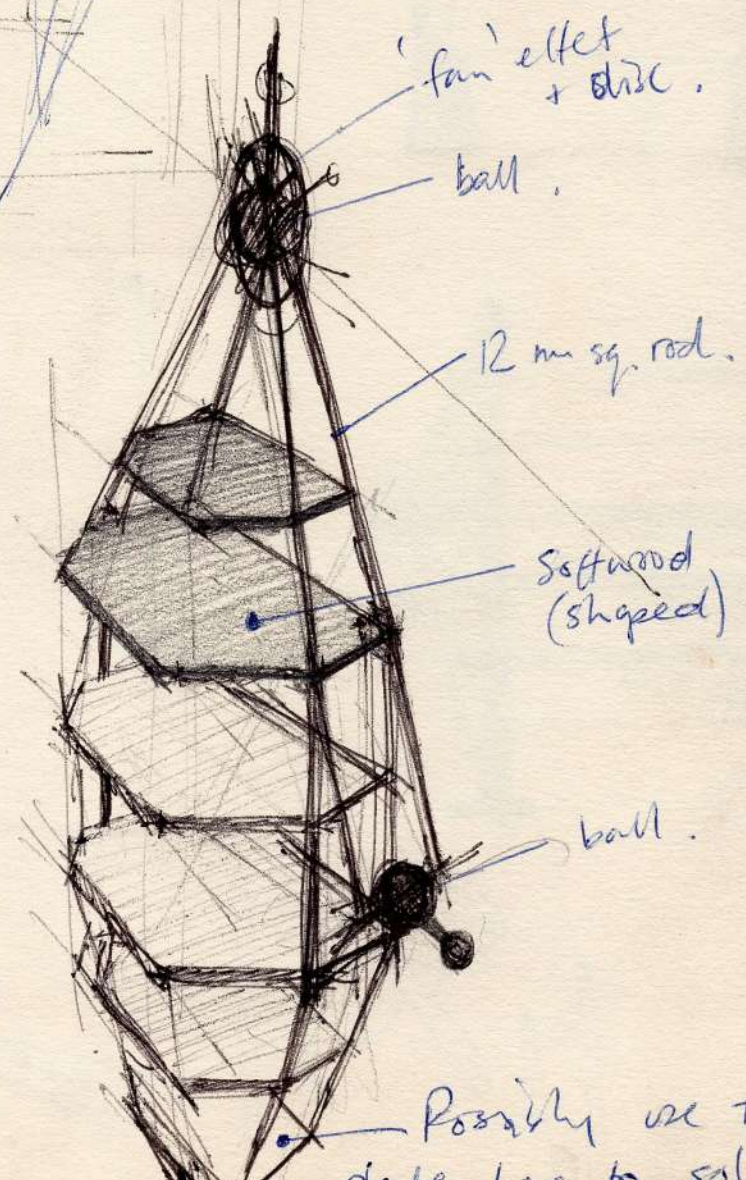 'fan' effet
+ disc.
ball.
12 mm sq. rod.
Softwood
(shaped)
ball.
Possibly use
to